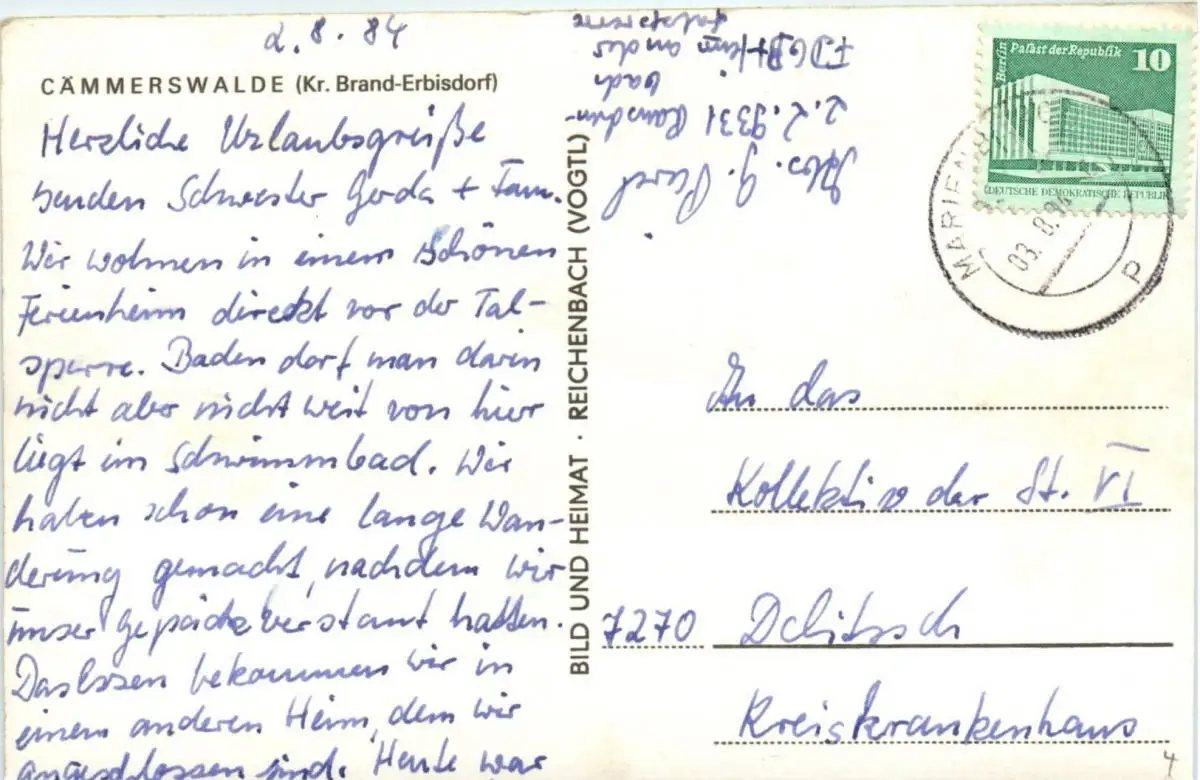 2.8.84
CÄMMERSWALDE (Kr. Brand-Erbisdorf)
Herzliche Urlaubsgrüße
senden Schwester Gerda + Fam.
Wir wohnen in einem schönen
Ferienheim direkt vor der Tal-
sperre. Baden darf man darin
nicht aber nicht weit von hier
liegt im Schwimmbad. Wir
haben schon eine lange Wan-
derung gemacht, nachdem wir
unser Gepäck verstaut hatten.
Das Essen bekommen wir in
einem anderen Heim, dem wir
angeschlossen sind. Heute war
Abs. G.
z. Z. 9331
bach
FDGB Heim an der
Talsperre
BILD UND HEIMAT · REICHENBACH (VOGTL)
Berlin Palast der Republik 10
DEUTSCHE DEMOKRATISCHE REPUBLIK
MARIEN
03.8.84
P
An das
Kollektiv der St. VI
7270 Delitzsch
Kreiskrankenhaus
4